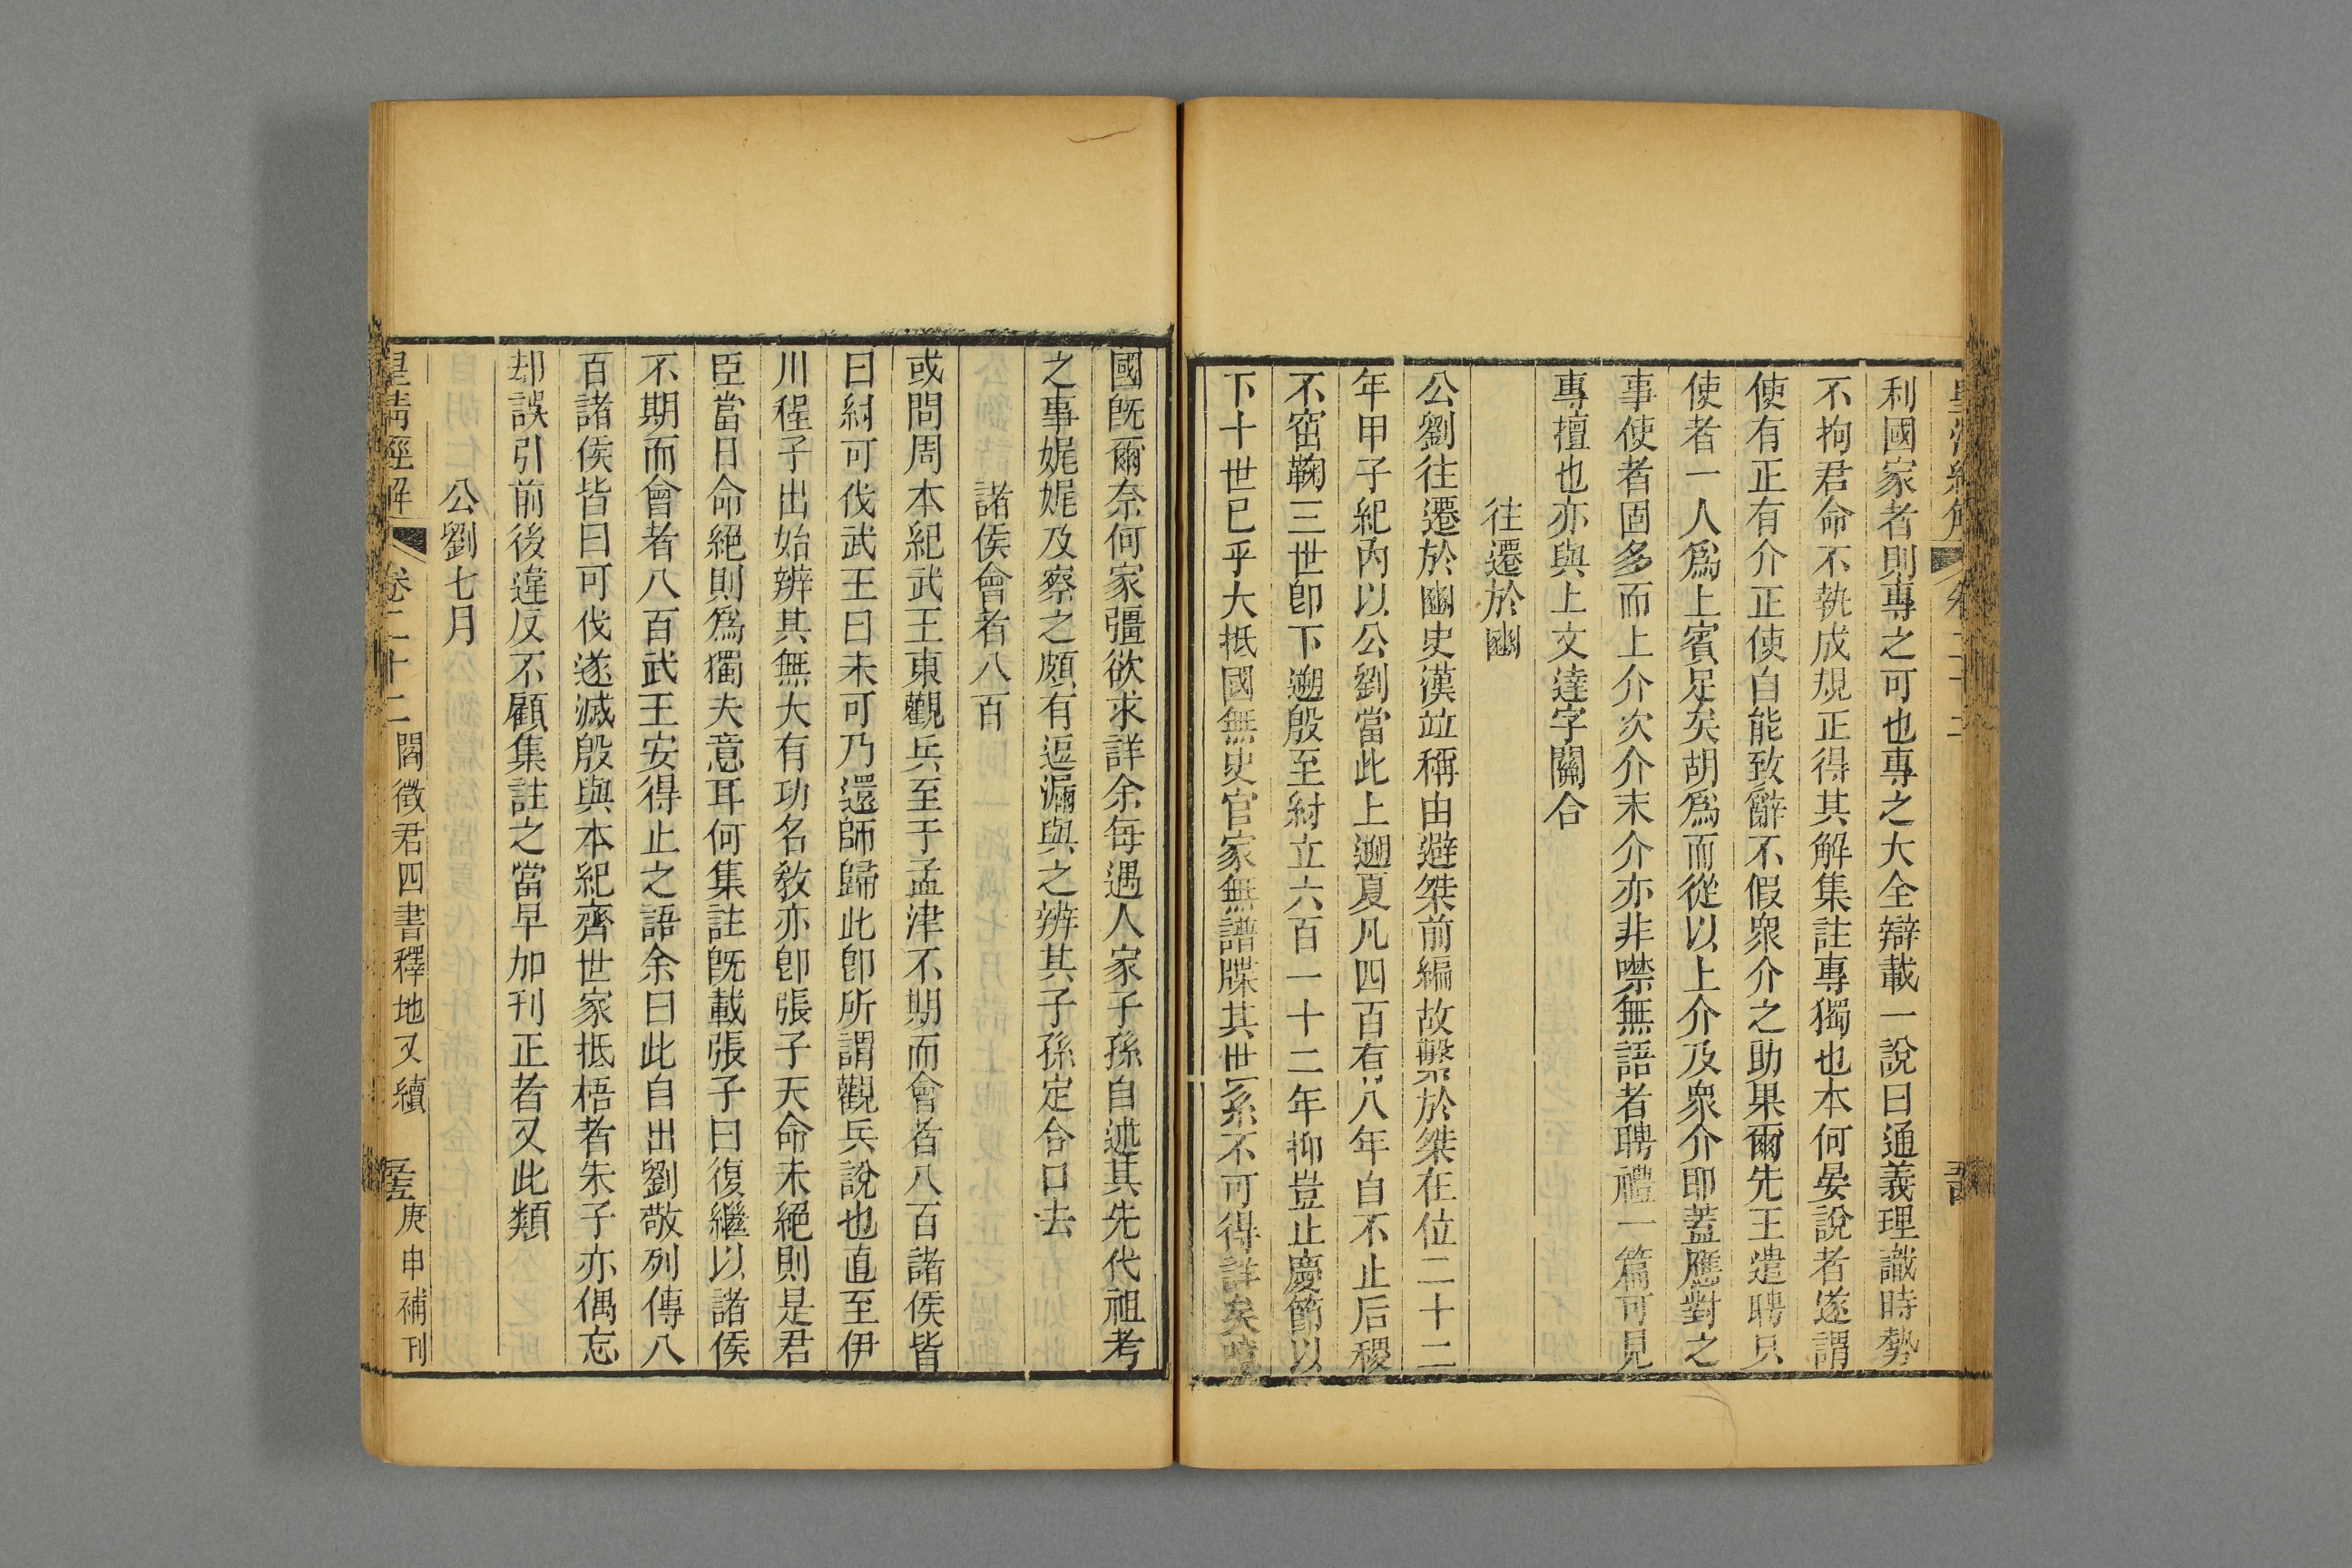 利國家者則專之可也專之大全辯載一說曰通義理識時勢
不拘君命不執成規正得其解集註專獨也本何晏說者遂謂
使有正有介正使自能致辭不假衆介之助果爾先王遣聘只
使者一人爲上賓足矣胡爲而從以上介及衆介耶蓋應對之
事使者固多而上介次介末介亦非噤無語者聘禮一篇可見
專擅也亦與上文達字關合
往遷於豳
公劉往遷於豳史漢竝稱由避桀前編故繫於桀在位二十二
年甲子紀內以公劉當此上遡夏凡四百有八年自不止后稷
不窋鞠三世卽下遡殷至紂立六百一十二年抑豈止慶節以
下十世已乎大抵國無史官家無譜牒其世系不可得詳矣
國旣爾奈何家彊欲求詳余每遇人家子孫自述其先代祖考
之事娓娓及察之頗有逗漏與之辨其子孫定合口去
諸侯會者八百
或問周本紀武王東觀兵至于孟津不期而會者八百諸侯皆
曰紂可伐武王曰未可乃還師歸此卽所謂觀兵說也直至伊
川程子出始辨其無大有功名敎亦卽張子天命未絕則是君
臣當日命絕則爲獨夫意耳何集註旣載張子曰復繼以諸侯
不期而會者八百武王安得止之語余曰此自出劉敬列傳八
百諸侯皆曰可伐遂滅殷與本紀齊世家抵梧者朱子亦偶忘
却誤引前後違反不顧集註之當早加刊正者又此類
公劉七月
皇淸經解 卷二十二 閻徵君四書釋地又續 庚申補刊